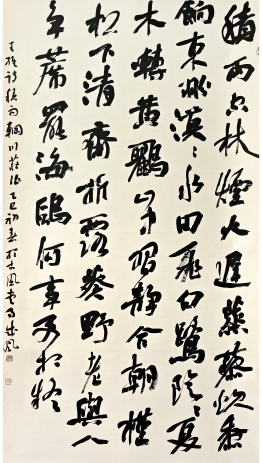 積雨空林煙火遲蒸藜炊黍
餉東菑漠〻水田飛白鷺陰〻夏
木轉黄鸝山中習靜合朝槿
松下清齋折露葵野老與人
爭席罷海鷗何事更相疑
王維詩積雨輞川莊作乙巳初春於古風堂